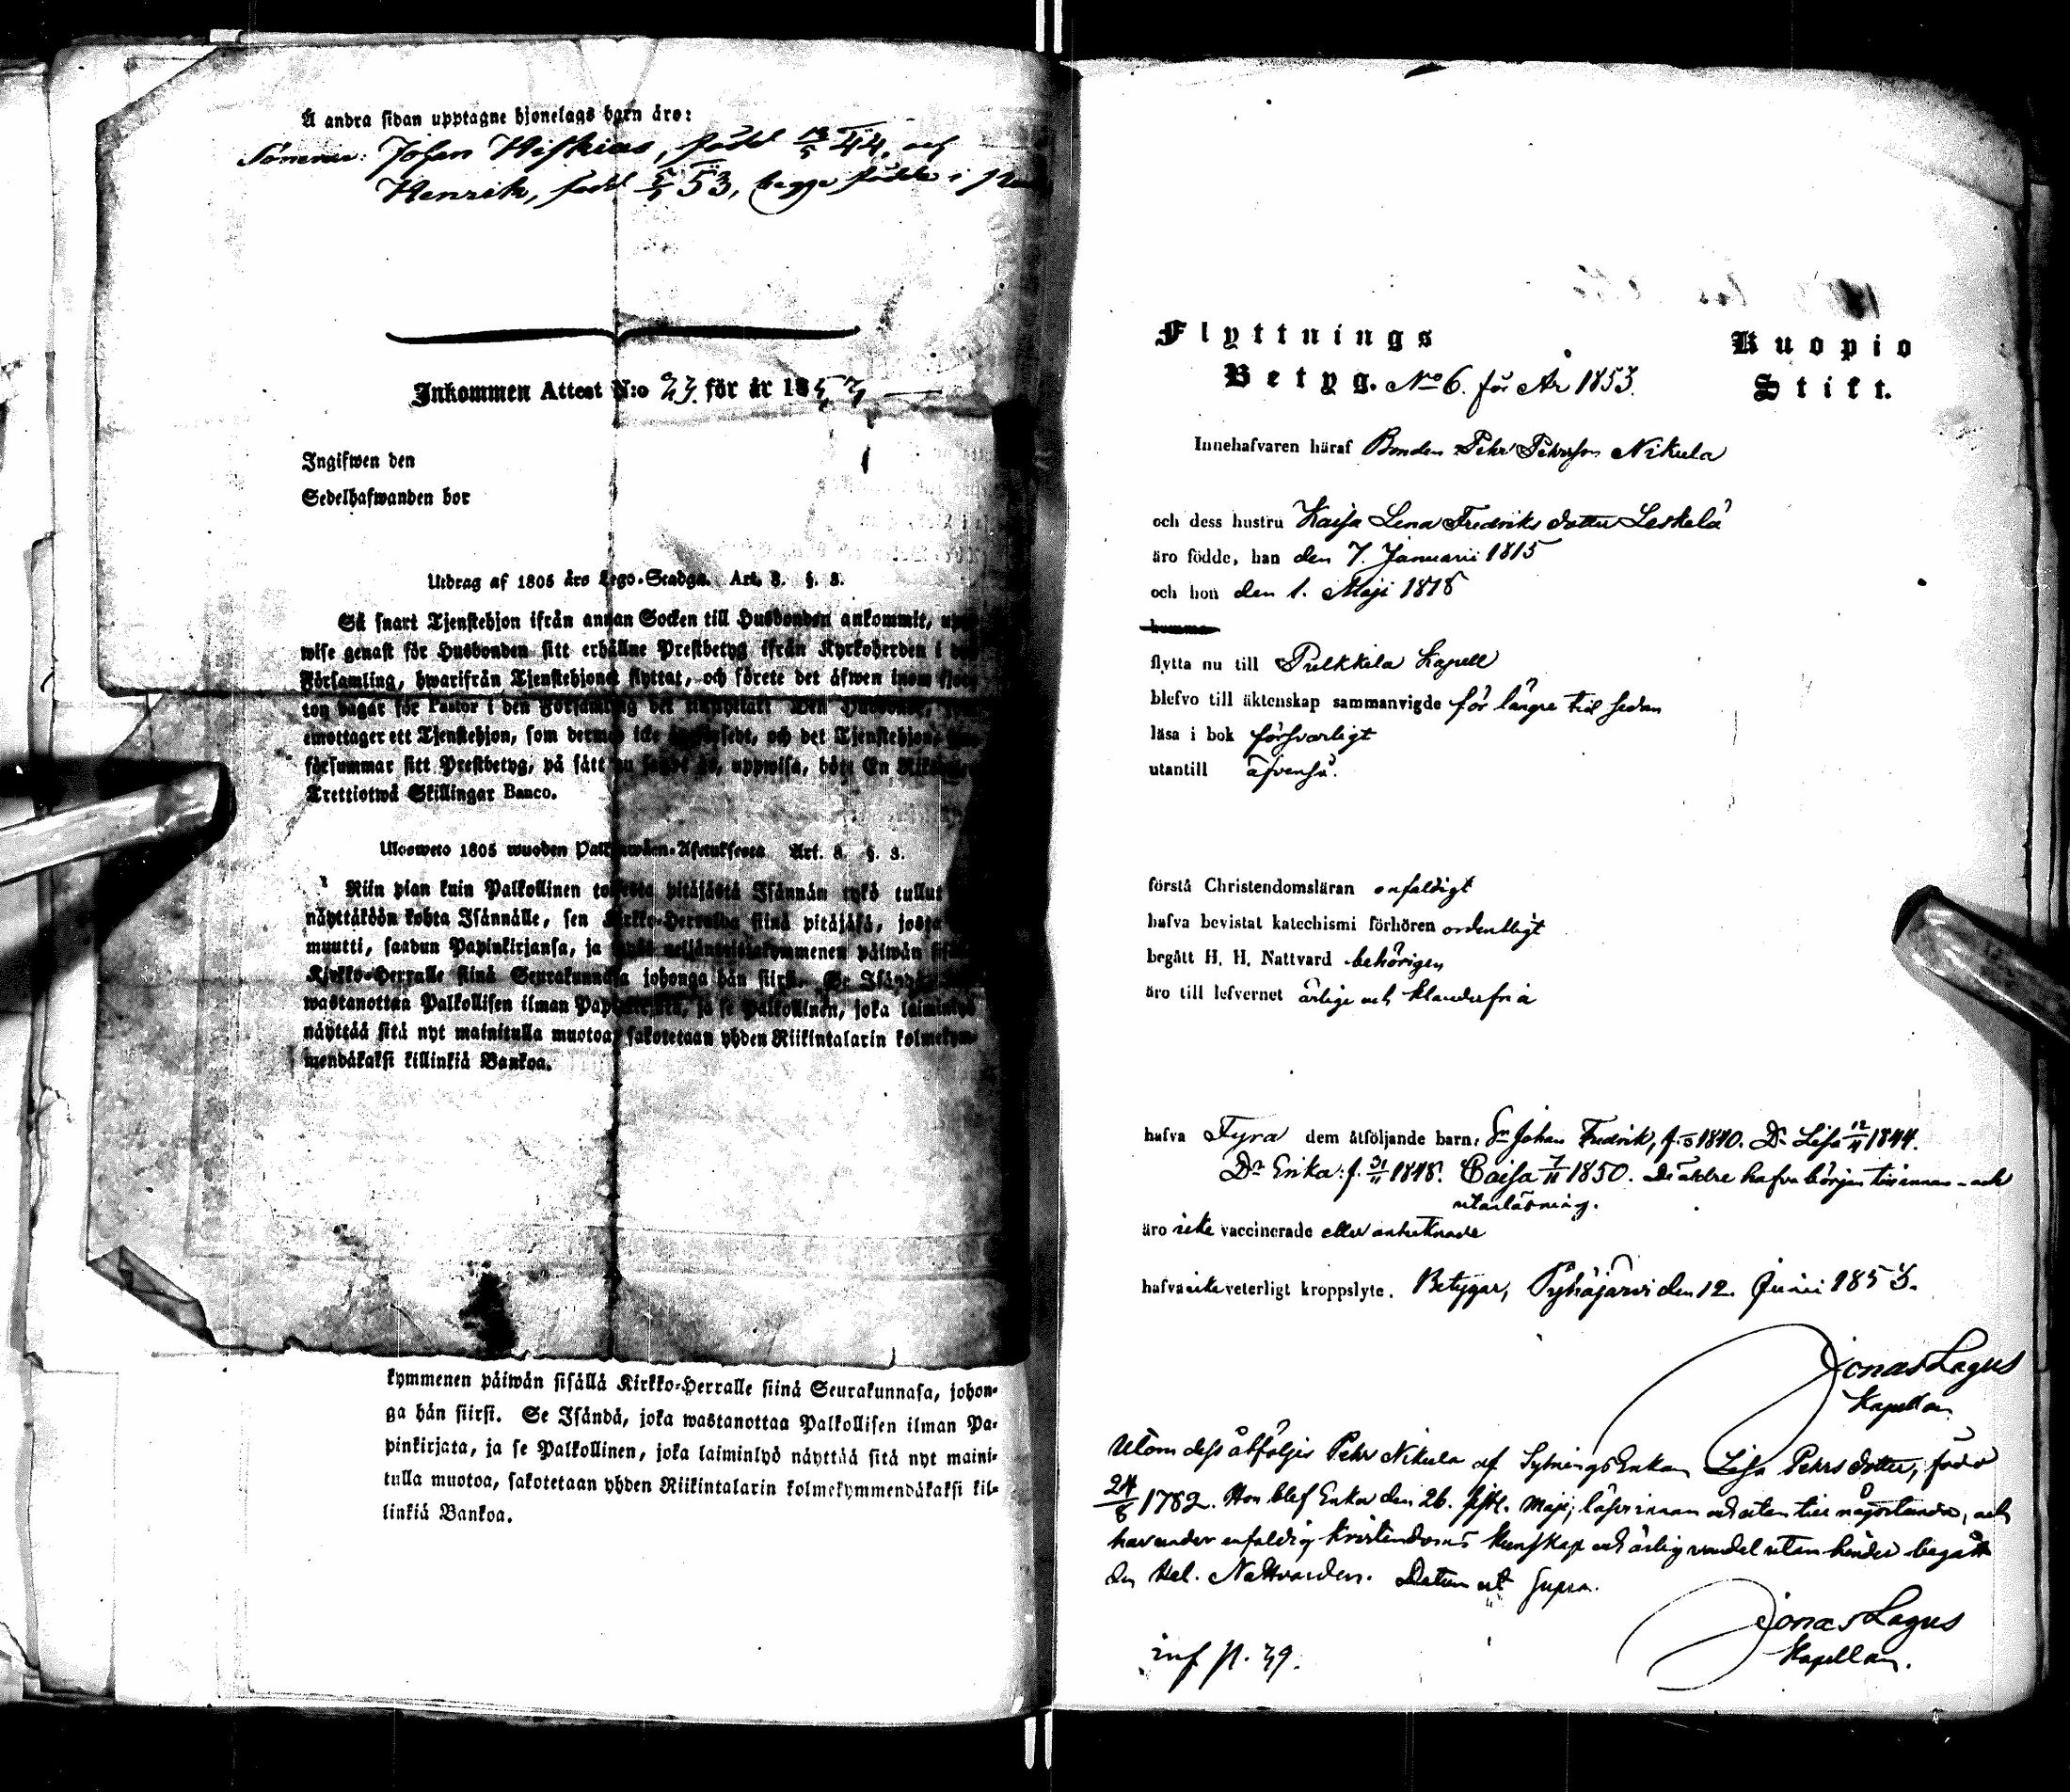 Å andra sidan upptagne hjonelags barn äro:
Sönerne: Johan Hiskias, född 13/5 44, och
Henrik, född 5/1 53, begge födde i
Inkommen Attest N:o 23 för år 185
Ingifwen den
Sedelhafwanden bor
Utdrag af 1805 års Lego-Stadga. Art. 8. §. 3.
Så snart Tjenstehjon ifrån annan Socken till Husbonden ankommit,
wise genast för Husbonden sitt erhållne Prestbetyg ifrån Kyrkoherden i
Församling, hwarifrån Tjenstehjonet flyttat, och förete det äfwen inom
ton dagar för Pastor i den Församling det
emottager ett Tjenstehjon, som dermed icke och det Tjenstehjon,
försummar sitt Prestbetyg, på sätt nu uppwisa, böte En
Trettiotwå Skillingar Banco.
Ulosweto 1805 wuoden Palkkawäen-Asetuksesta Art. 8. §. 3.
Niin pian kuin Palkollinen toisesta pitäjästä Isännän tykö tullut
näyttäköön kohta Isännälle, sen Kirkko-Herralda siinä pitäjäsä, josta
muutti, saadun Papinkirjansa, ja neljäntoistakymmenen päiwän
Kirkko-Herralle siinä Seurakunnasa johonga hän siirsi. Se Isändä
wastanottaa Palkollisen ilman Papinkirjata, ja se Palkollinen, joka laiminlyö
näyttää sitä nyt mainitulla muotoa, sakotetaan yhden Riikintalarin kolmekym-
mendäkaksi killinkiä Bankoa.
kymmenen päiwän sisällä Kirkko-Herralle siinä Seurakunnasa, johon-
ga hän siirsi. Se Isändä, joka wastanottaa Palkollisen ilman Pa-
pinkirjata, ja se Palkollinen, joka laiminlyö näyttää sitä nyt maini-
tulla muotoa, sakotetaan yhden Riikintalarin kolmekymmendäkaksi kil-
linkiä Bankoa.
Flyttnings
Betyg. No 6. för År 1853.
Kuopio
Stift.
Innehafvaren häraf Bonden Pehr Pehrsson Nikula
och dess hustru Kaisa Lena Fredriks dotter Leskelä
äro födde, han den 7. Januarii 1815
och hon den 1. Maji 1818
komma
flytta nu till Pulkkila Kapell
blefvo till äktenskap sammanvigde för längre tid sedan
läsa i bok försvarligt
utantill äfvenså.
förstå Christendomsläran enfaldigt
hafva bevistat katechismi förhören ordentligt
begått H. H. Nattvard behörigen
äro till lefvernet ärlige och klanderfria
hafva Fyra dem åtföljande barn, Sn Johan Fredrik, f. 1840. Dr Lisa 12/11 1844.
Dr Erika f. 31/11 1848. Caisa 7/11 1850. De äldre hafva början till innan- och
utanläsning.
äro icke vaccinerade eller anteknade
hafva icke veterligt kroppslyte. Betygar, Pyhäjärvi den 12. Junii 1853.
Jonas Lagus
Kapellan
Utom dess åtföljes Pehr Nikula af Sytnings Enkan Lisa Pehrs dotter, född
24/8 1782. Hon blef Enka den 26. sistl. Maji, läser innan och utan till någorlunda, och
har under enfaldig kristendoms kunskap och ärlig vandel utan hinder begått
den Hel. Nattvarden. Datum ut supra.
Jonas Lagus
Kapellan.
inf p. 39.